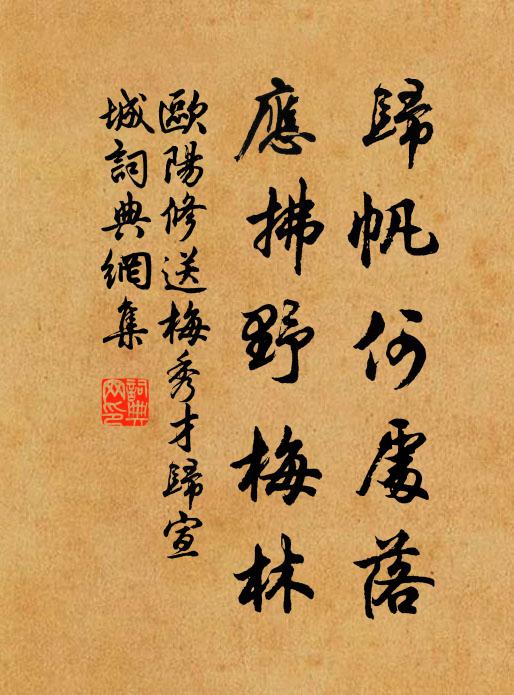 歸帆何處落
應拂野梅林
歐陽修送梅秀才歸宣
城詞典網集
詞典
網印